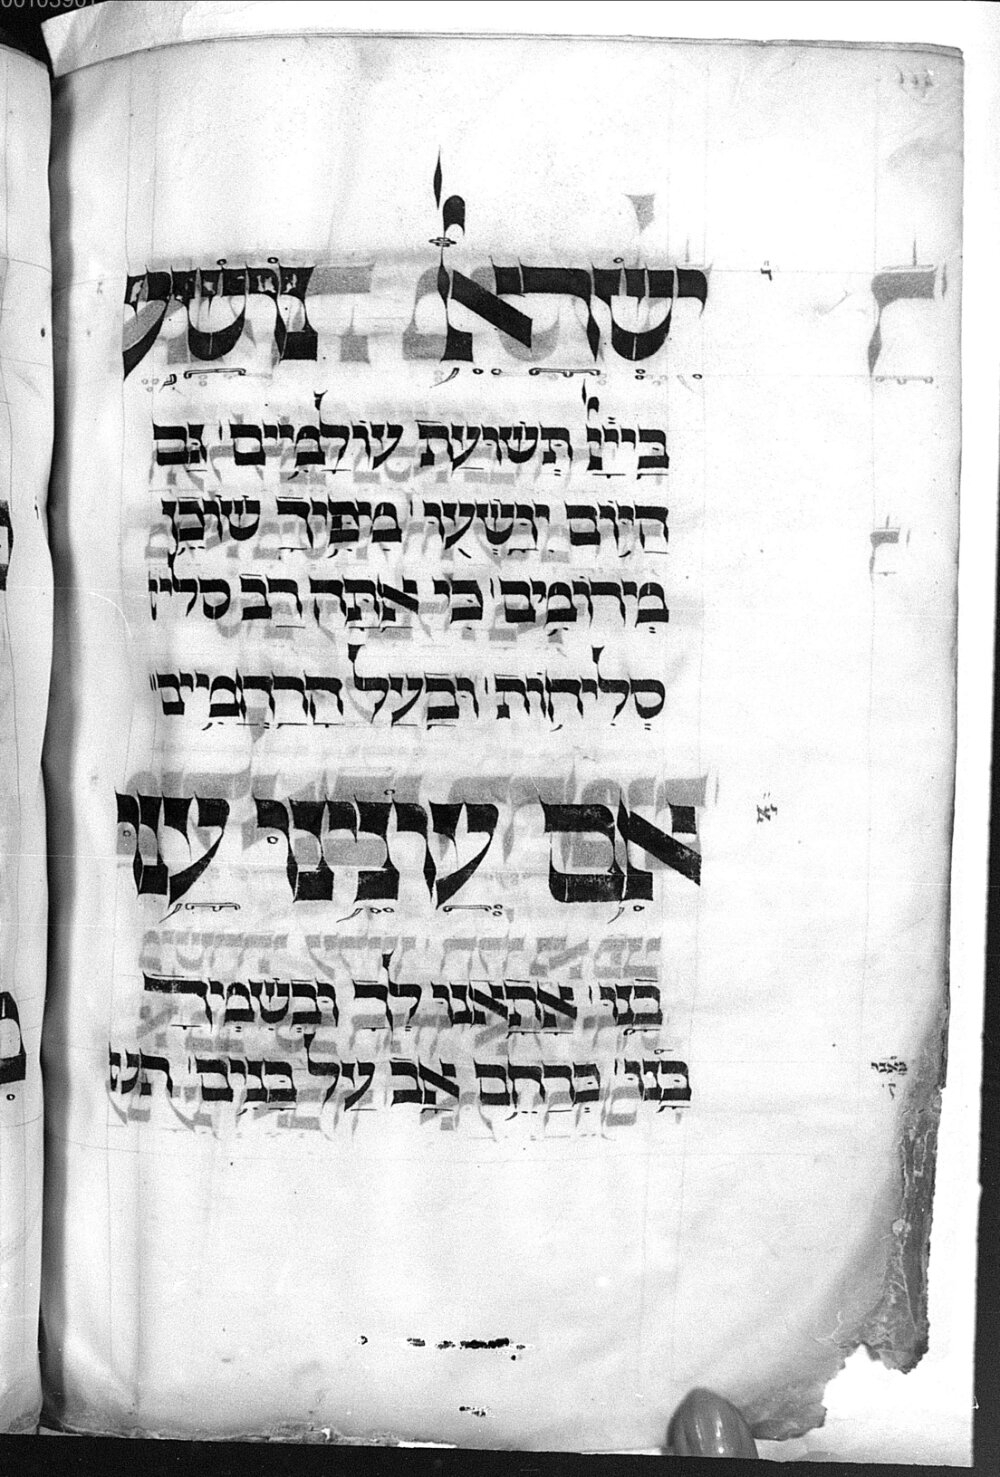 ישראל נושע
בייי תשועת עולמים גם
היום יושעו מפיך שוכן
מירומים כי אתה רב סלי
סליחות ובעל הרחמים
אם עונינו ענו
בנו אתאנו לך ובשמיך
בנו כרחם אב על בנים תש